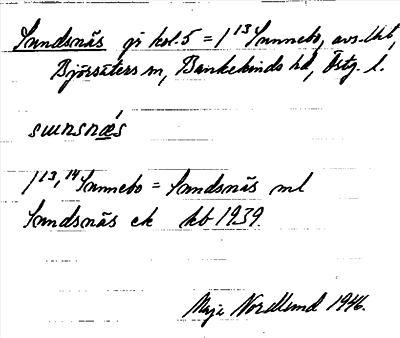 Sundsnäs gd kol. 5 = 1¹³ Sunnebo, avs. lht,
Björsäters sn, Bankekinds hd, Östg. l.
sunsnæ´s
1¹³,¹⁴ Sunnebo = Sundsnäs ml
Sundsnäs ek kb 1939.
Maja Nordlund 1946.